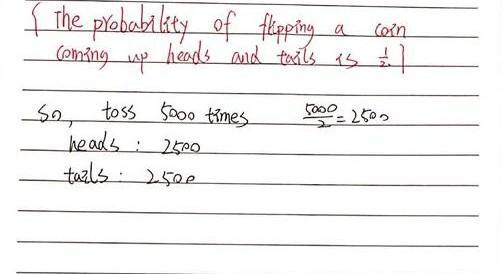 { The probability of flipping a coin
coming up heads and tails is 1/2. }
So, toss 5000 times 5000/2 = 2500
heads : 2500
tails : 2500